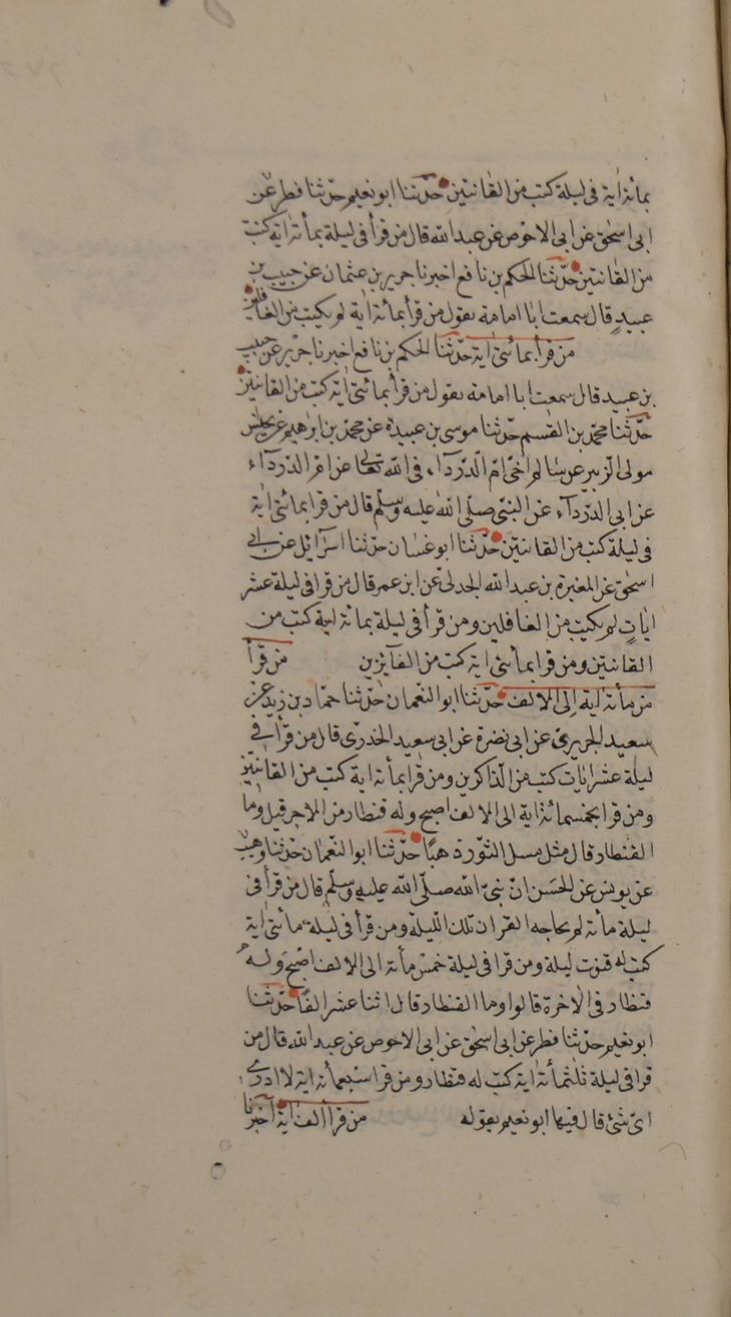 بمائة اية فى ليلة كتب من القانتين حدّثنا ابو نعيم حدّثنا فطر عن
ابى اسحٰق عن ابى الاحوص عن عبد الله قال من قرأ فى ليلة بمأئة اية كتب
من القانتين حدّثنا الحكم بن نافع اخبرنا جرير بن عثمان عن حبيب بن
عبيدٍ قال سمعت ابا امامة يقول من قرأ بمائة اية لم يكتب من الغافلين
من قرأ بمائتى اية حدّثنا الحكم بن نافع اخبرنا جرير عن حبيب
بن عبيد قال سمعت ابا امامة يقول من قرأ بمائتى اية كتب من القانتين
حدّثنا محمّد بن القسم حدّثنا موسى بن عبيدة عن محمّد بن ابرهيم عن يحنّس
مولى الزبير عن سالم اخى امّ الدّرداء فى الله تعالى عن امّ الدّرداء
عن ابى الدّرداء عن النبّى صلّى الله عليه وسلّم قال من قرا بمائتى اية
فى ليلة كتب من القانتين حدّثنا ابو غسان حدّثنا اسرآئيل عن ابى
اسحٰق عن المغيرة بن عبد الله الجدلى عن ابن عمر قال من قرا فى ليلة عشر
اياتٍ لم يكتب من الغافلين ومن قرأ فى ليلة بمائة اية كتب من
القانتين ومن قرا بمأئتى اية كتب من الفآئزين من قرأ
من مأئة اية الى الالف حدّثنا ابو النعمان حدّثنا حمّاد بن زيد عن
سعيد الجريرى عن ابى نضرة عن ابى سعيد الخدرى قال من قرأ فى
ليلة عشر ايات كتب من الذاكرين ومن قرا بمأئة اية كتب من القانتين
ومن قرا بخمسمائة اية الى الالف اصبح وله قنطار من الاجر قيل وما
القنطار قال مثل مسك الثّور ذهبًا حدّثنا ابو النّعمان حدّثنا وهيب
عن يونس عن الحسن انّ نبىّ الله صلّى الله عليه وسلّم قال من قرأ فى
ليلة مأئة لم يحاجه القران تلك الليلة ومن قرأ فى ليلة مأئتى اية
كتب له قنوت ليلة ومن قرا فى ليلة خمس مأئة الى الالف اصبح وله
قنطار فى الاخرة قالوا وما القنطار قال اثنا عشر الفًا حدّثنا
ابو نعيم حدّثنا فطر عن ابى اسحٰق عن ابى الاحوص عن عبد الله قال من
قرا فى ليلة ثلثمأئة اية كتب له قنطار ومن قرا سبعمأئة اية لا ادرى
اىّ شئ قال فيها ابو نعيم بقوله من قرأ الف اية اخبرنا